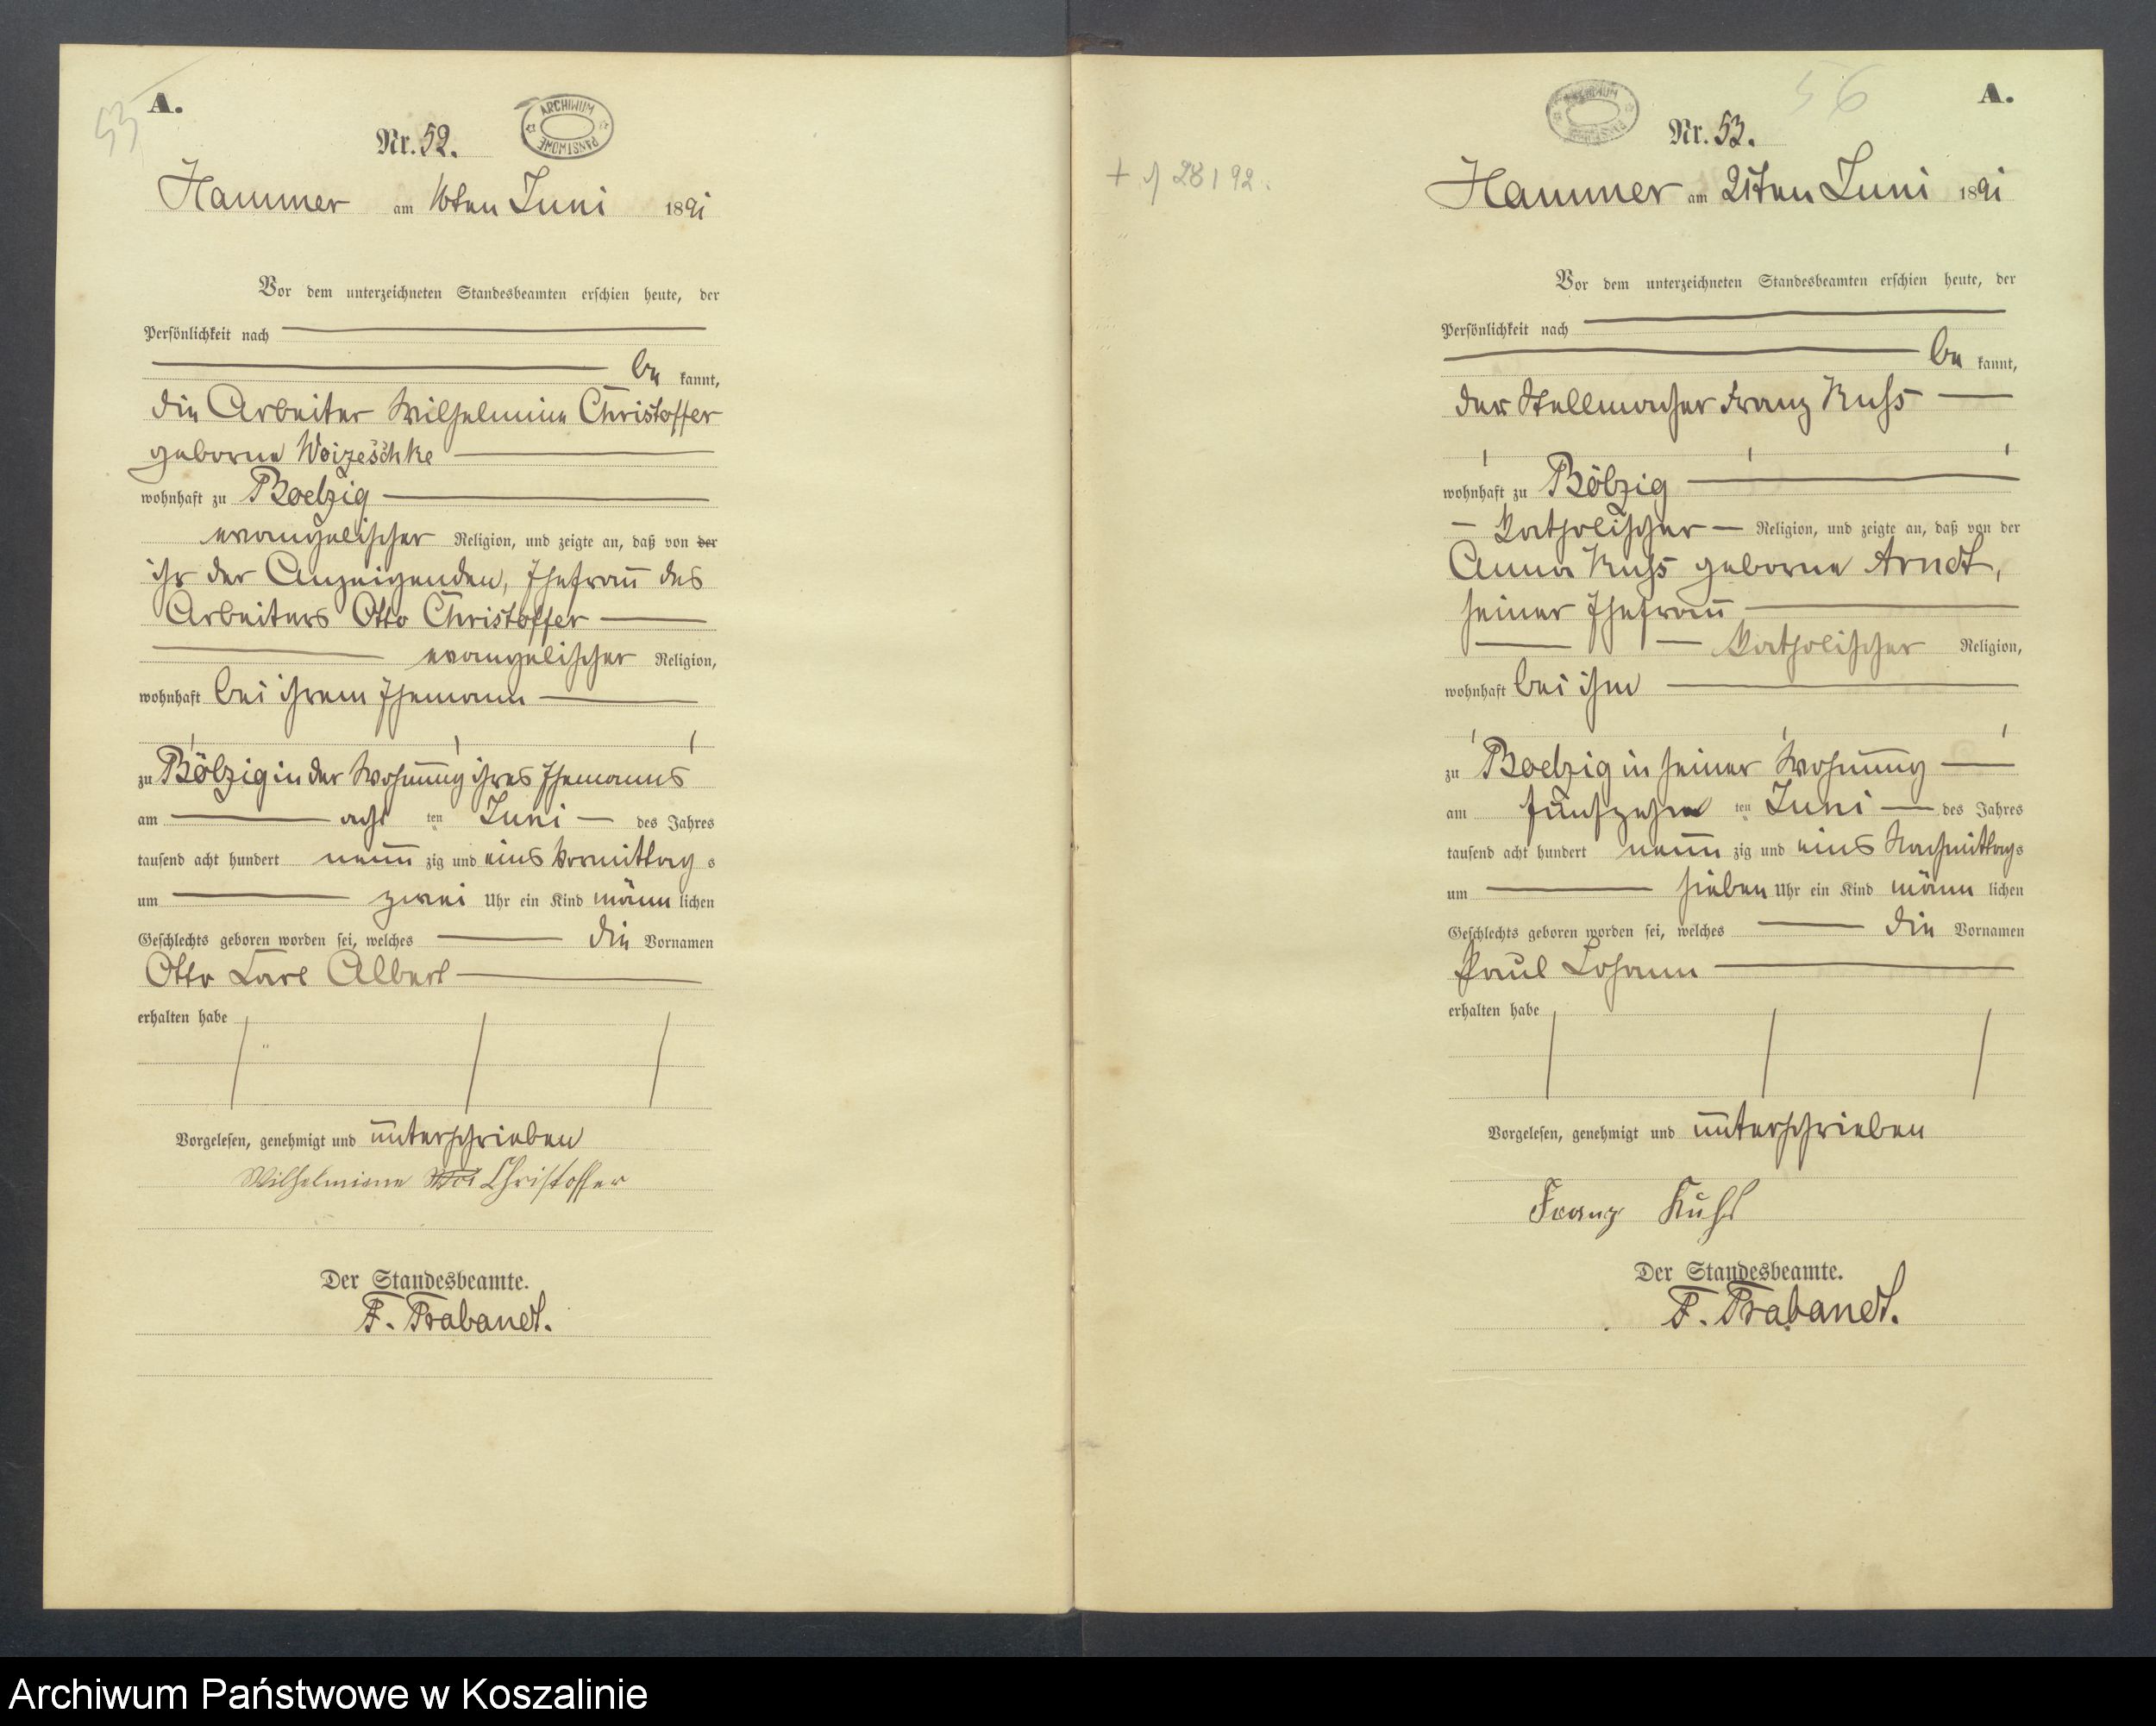 53
A.
ARCHIWUM PAŃSTWOWE
Nr. 52.
Hammer am 16ten Juni 1891
Vor dem unterzeichneten Standesbeamten erschien heute, der
Persönlichkeit nach
be kannt,
die Arbeiter Wilhelmine Christoffer
geborne Woizeschke
wohnhaft zu Boelzig
evangelischer Religion, und zeigte an, daß von der
ihr der Anzeigenden, Ehefrau des
Arbeiters Otto Christoffer
evangelischer Religion,
wohnhaft bei ihrem Ehemann
zu Bölzig in der Wohnung ihres Ehemanns
am acht ten Juni des Jahres
tausend acht hundert neun zig und eins Vormittag s
um zwei Uhr ein Kind männ lichen
Geschlechts geboren worden sei, welches die Vornamen
Otto Carl Albert
erhalten habe
Vorgelesen, genehmigt und unterschrieben
Wilhelmiene Christoffer
Der Standesbeamte.
F. Brabandt.
56
A.
ARCHIWUM PAŃSTWOWE
Nr. 53.
28 / 92.
Hammer am 21ten Juni 1891
Vor dem unterzeichneten Standesbeamten erschien heute, der
Persönlichkeit nach
be kannt,
der Stellmacher Franz Kuhs
wohnhaft zu Bölzig
katholischer Religion, und zeigte an, daß von der
Anna Kuhs geborne Arndt,
seiner Ehefrau
katholischer Religion,
wohnhaft bei ihm
zu Boelzig in seiner Wohnung
am fünfzehn ten Juni des Jahres
tausend acht hundert neun zig und eins Nachmittags
um sieben Uhr ein Kind männ lichen
Geschlechts geboren worden sei, welches die Vornamen
Paul Johann
erhalten habe
Vorgelesen, genehmigt und unterschrieben
Franz Kuhs
Der Standesbeamte.
F. Brabandt.
Archiwum Państwowe w Koszalinie